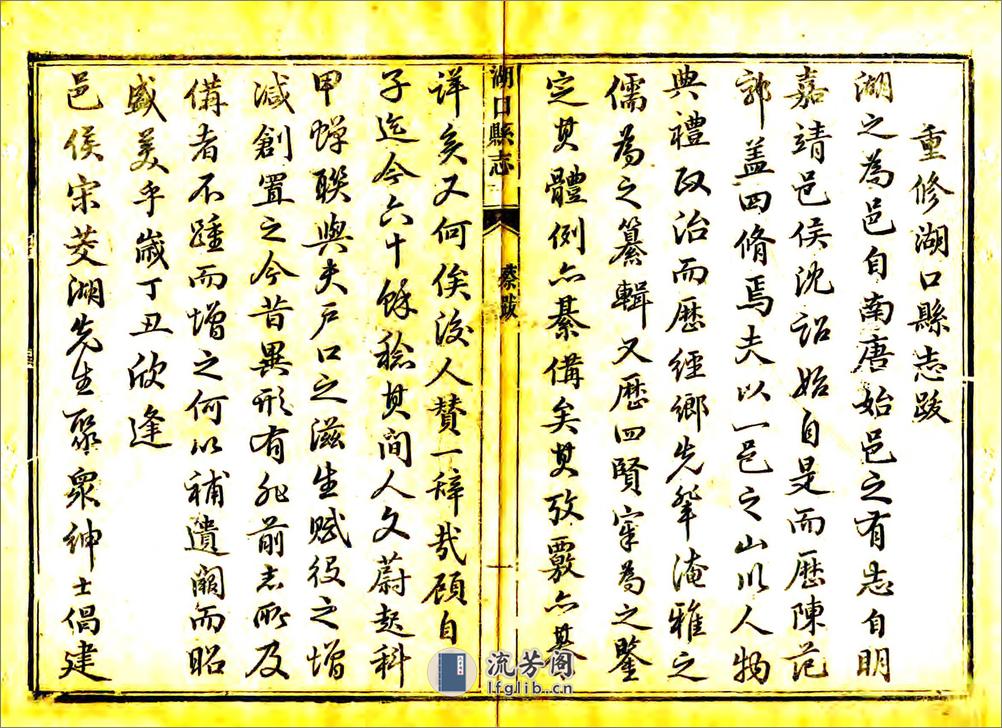 重修湖口縣志跋
湖之為邑自南唐始邑之有志自明
嘉靖邑侯沈詔始自是而歷陳范
郭蓋四脩焉夫以一邑之山川人物
典禮政治而歷經鄉先輩淹雅之
儒為之纂輯又歷四賢宰為之鑒
定其體例亦綦備矣其攷覈亦綦
湖口縣志
蔡跋
一
詳矣又何俟後人贊一辞哉顧自
子迄今六十餘稔其間人文蔚起科
甲蟬聯與夫戶口之滋生賦役之增
減創置之今昔異形有非前志所及
備者不踵而增之何以補遺闕而昭
盛美乎歲丁丑欣逢
邑侯宋菱湖先生聚衆紳士倡建
流芳阁
lfglib.cn